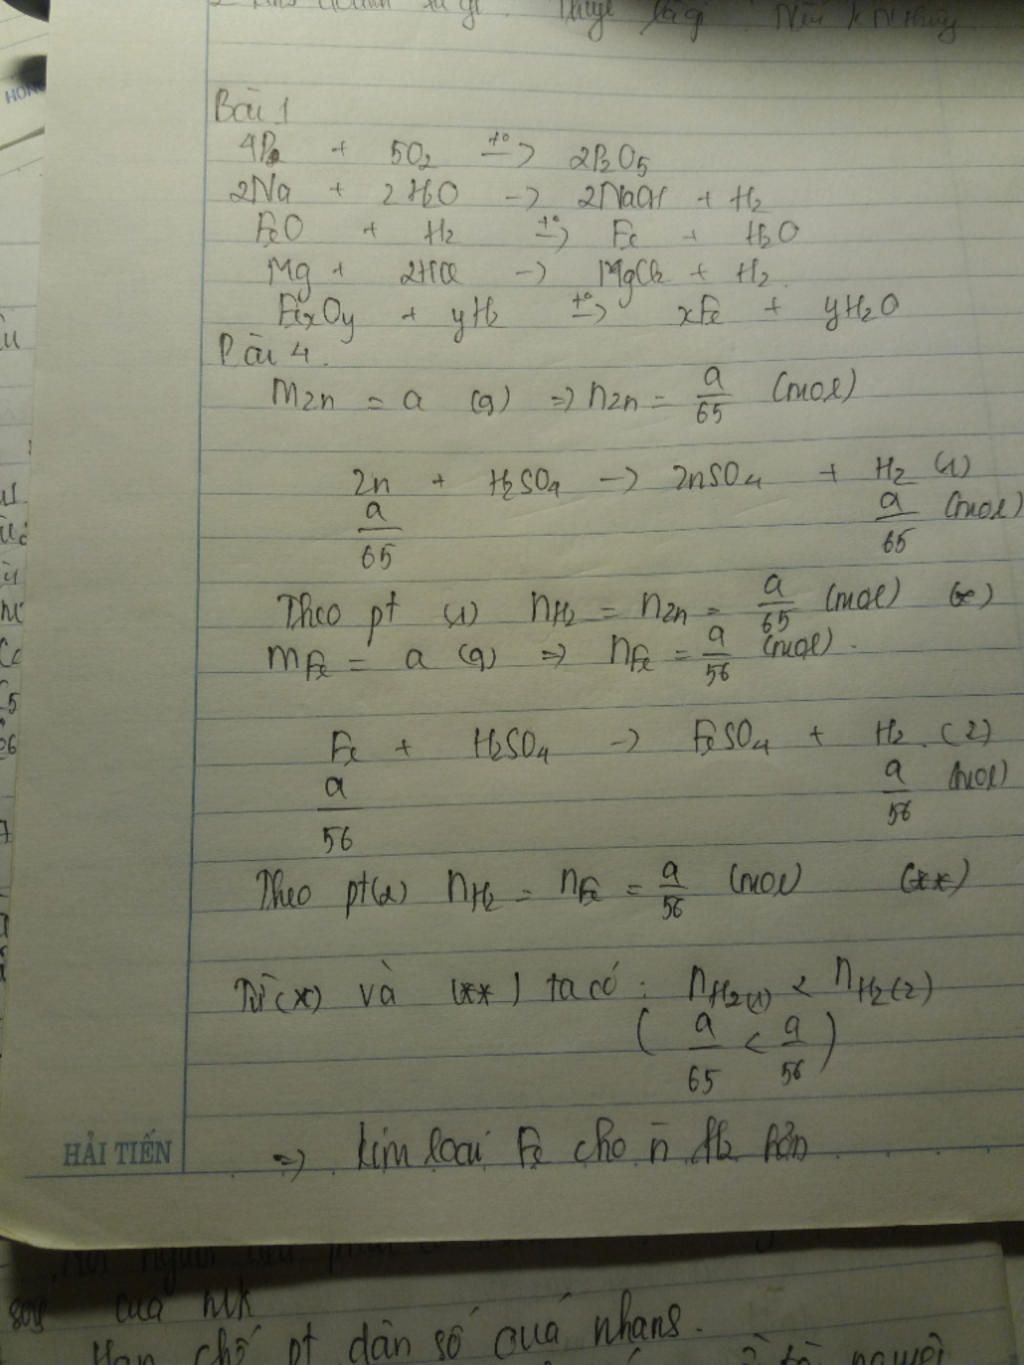 Bài 1
4P + 5O2 t°-> 2P2O5
2Na + 2H2O -> 2NaOH + H2
FeO + H2 t°-> Fe + H2O
Mg + 2HCl -> MgCl2 + H2
FexOy + yH2 t°-> xFe + yH2O
Bài 4.
mZn = a (g) => nZn = a/65 (mol)
Zn + H2SO4 -> ZnSO4 + H2 (1)
a/65 a/65 (mol)
Theo pt (1) nH2 = nZn = a/65 (mol) (*)
mFe = a (g) => nFe = a/56 (mol).
Fe + H2SO4 -> FeSO4 + H2. (2)
a/56 a/56 (mol)
Theo pt(2) nH2 = nFe = a/56 (mol) (**)
Từ (*) và (**) ta có : nH2(1) < nH2(2)
( a/65 < a/56 )
=> kim loại Fe cho n H2 hơn
HẢI TIẾN
của nlk
Hạn chế pt dân số quá nhanh.